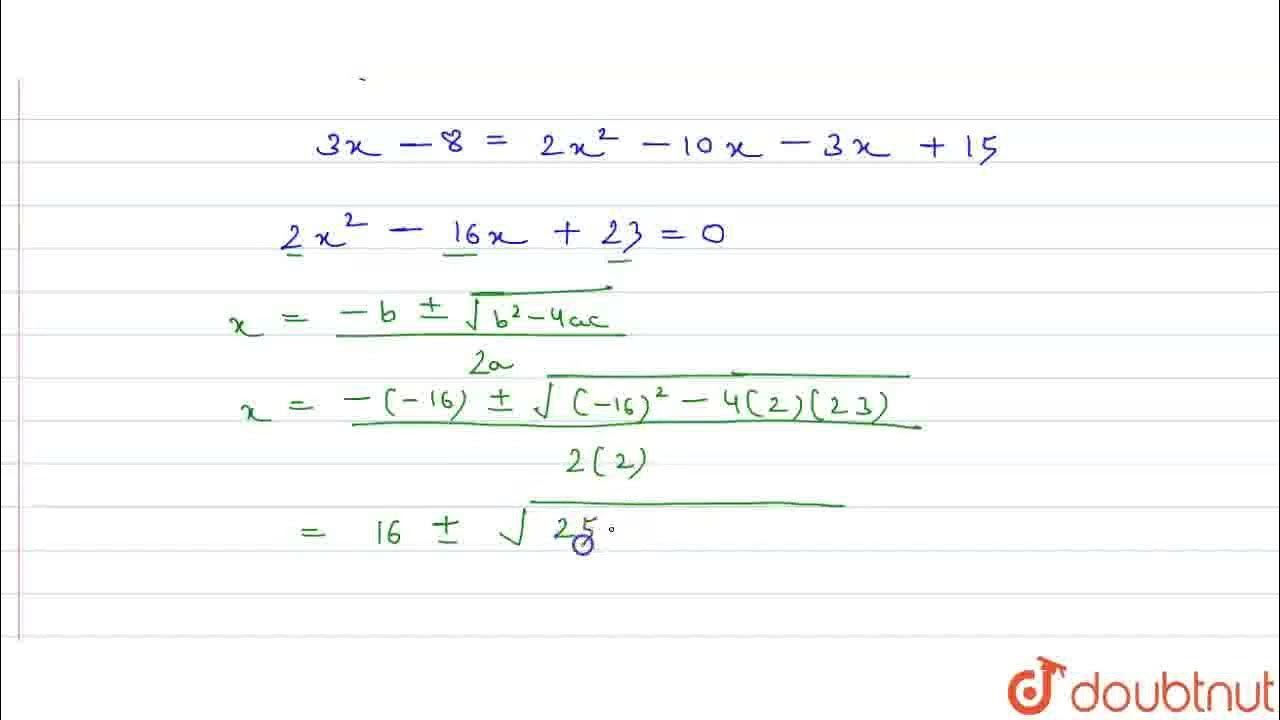 3x - 8 = 2x² - 10x - 3x + 15
2x² - 16x + 23 = 0
x = -b ± √b²-4ac
2a
x = -(-16) ± √(-16)² - 4(2)(23)
2(2)
= 16 ± √25
doubtnut